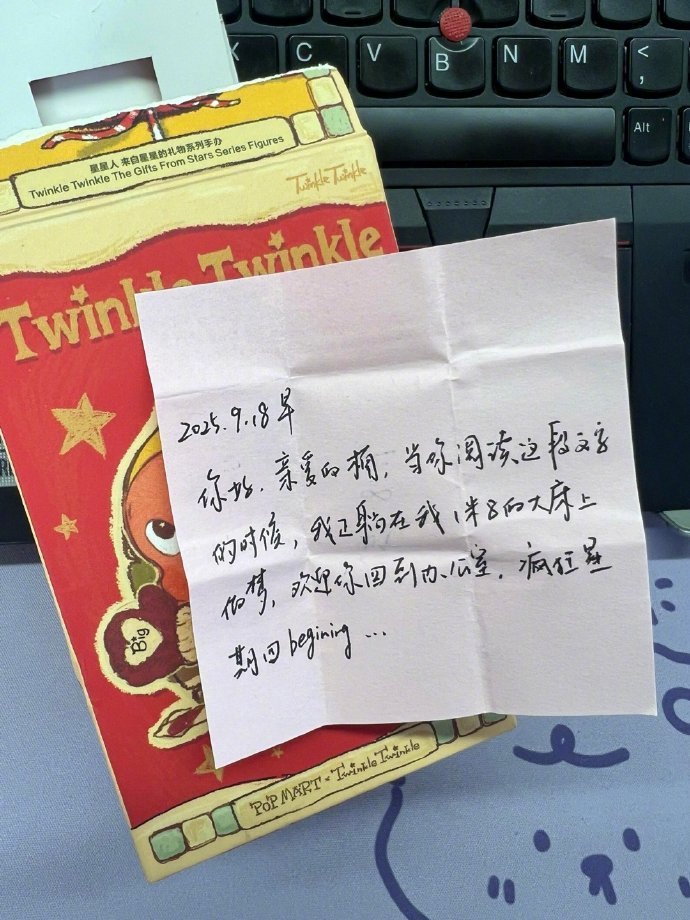 X
C
V
B
N
M
<
,
Alt
星星人 来自星星的礼物系列手办
Twinkle Twinkle The Gifts From Stars Series Figures
Twinkle Twinkle
Twinkle Twinkle
2025.9.18 早
你好，亲爱的桶，当你阅读这段文字
的时候，我正躺在我1米8的大床上
做梦，欢迎你回到办公室，疯狂星
期四 begining ...
Big
POP MART × Twinkle Twinkle